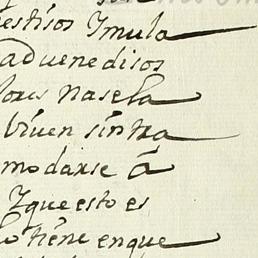 estisos Y mula
aduenedisos
lores nasela
biuen sin tra
modarse â
Y que esto es
lo tiene en que